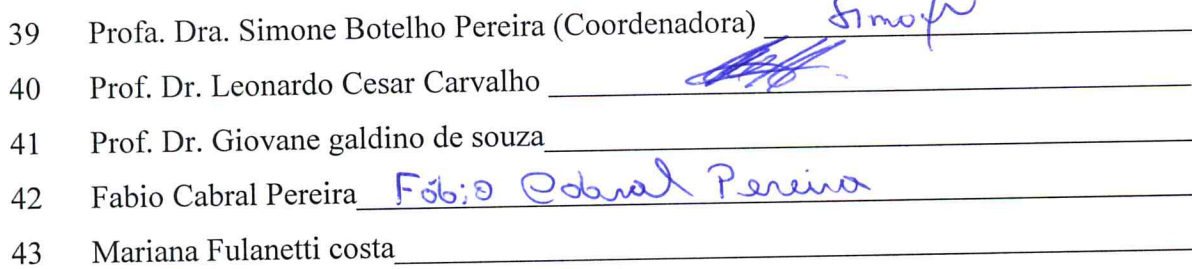 39 Profa. Dra. Simone Botelho Pereira (Coordenadora) Simo
40 Prof. Dr. Leonardo Cesar Carvalho
41 Prof. Dr. Giovane galdino de souza
42 Fabio Cabral Pereira Fábio Cabral Pereira
43 Mariana Fulanetti costa